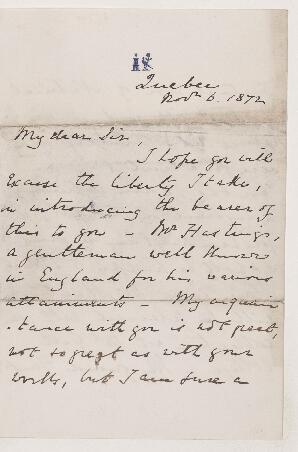 Quebec
Novr 6. 1872
My dear Sir,
I hope you will
excuse the liberty I take,
in introducing the bearer of
this to you - Mr Hastings,
a gentleman well known
in England for his various
attainments - My acquain
-tance with you is not great,
not so great as with your
works, but I am sure a